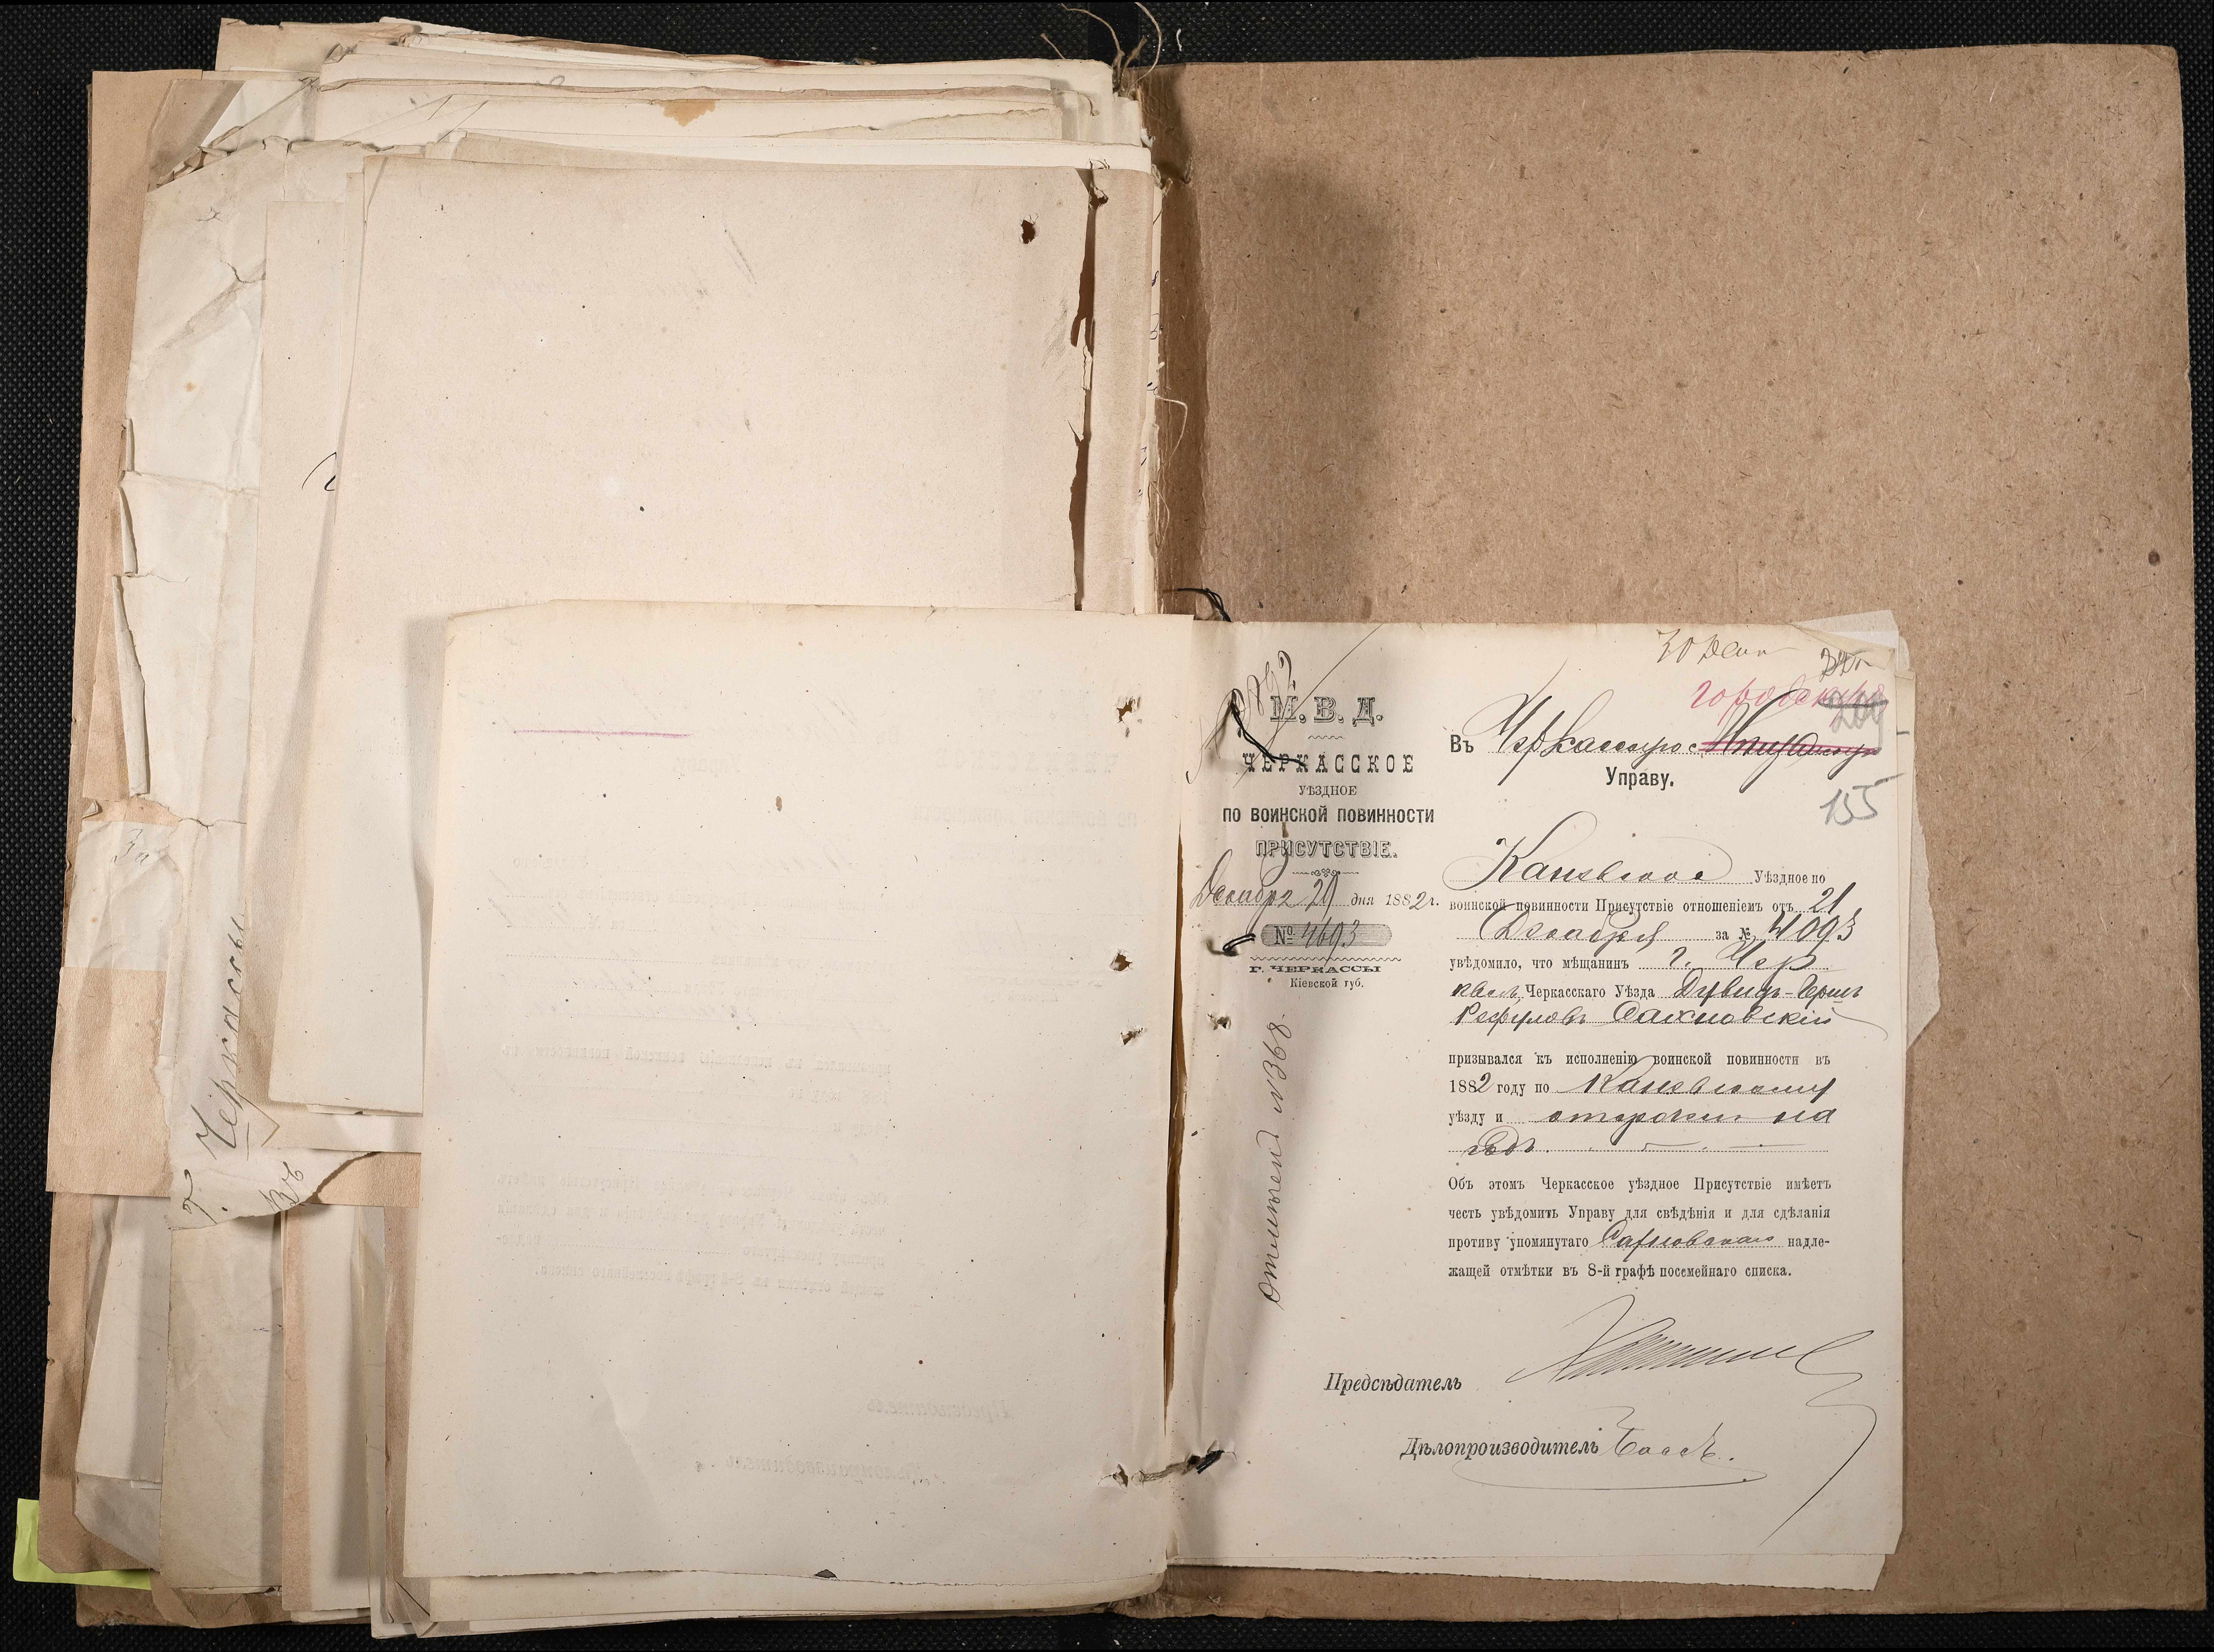 30 Дек
М. В. Д.
ЧЕРКАССКОЕ
УѢЗДНОЕ
ПО ВОИНСКОЙ ПОВИННОСТИ
ПРИСУТСТВІЕ.
Декабря 29 дня 1882 г.
№ 4693
Г. ЧЕРКАССЫ
Кіевской губ.
Отмѣтки №368.
городскую
Въ Черкасскую Мѣщанскую
Управу.
155
Каневское Уѣздное по
воинской повинности Присутствіе отношеніемъ отъ 21
Декабря за № 4093
увѣдомило, что мѣщанинъ г. Чер
касъ, Черкасскаго Уѣзда Дувидъ-Гершъ
Сахновскій
призывался къ исполненію воинской повинности въ
1882 году по Каневскому
уѣзду и отсрочен на
годъ.
Объ этомъ Черкасское уѣздное Присутствіе имѣетъ
честь увѣдомить Управу для свѣдѣнія и для сдѣланія
противу упомянутаго Сахновскаго надле-
жащей отмѣтки въ 8-й графѣ посемейнаго списка.
Предсѣдатель
Дѣлопроизводитель
г. Черкассы
Въ